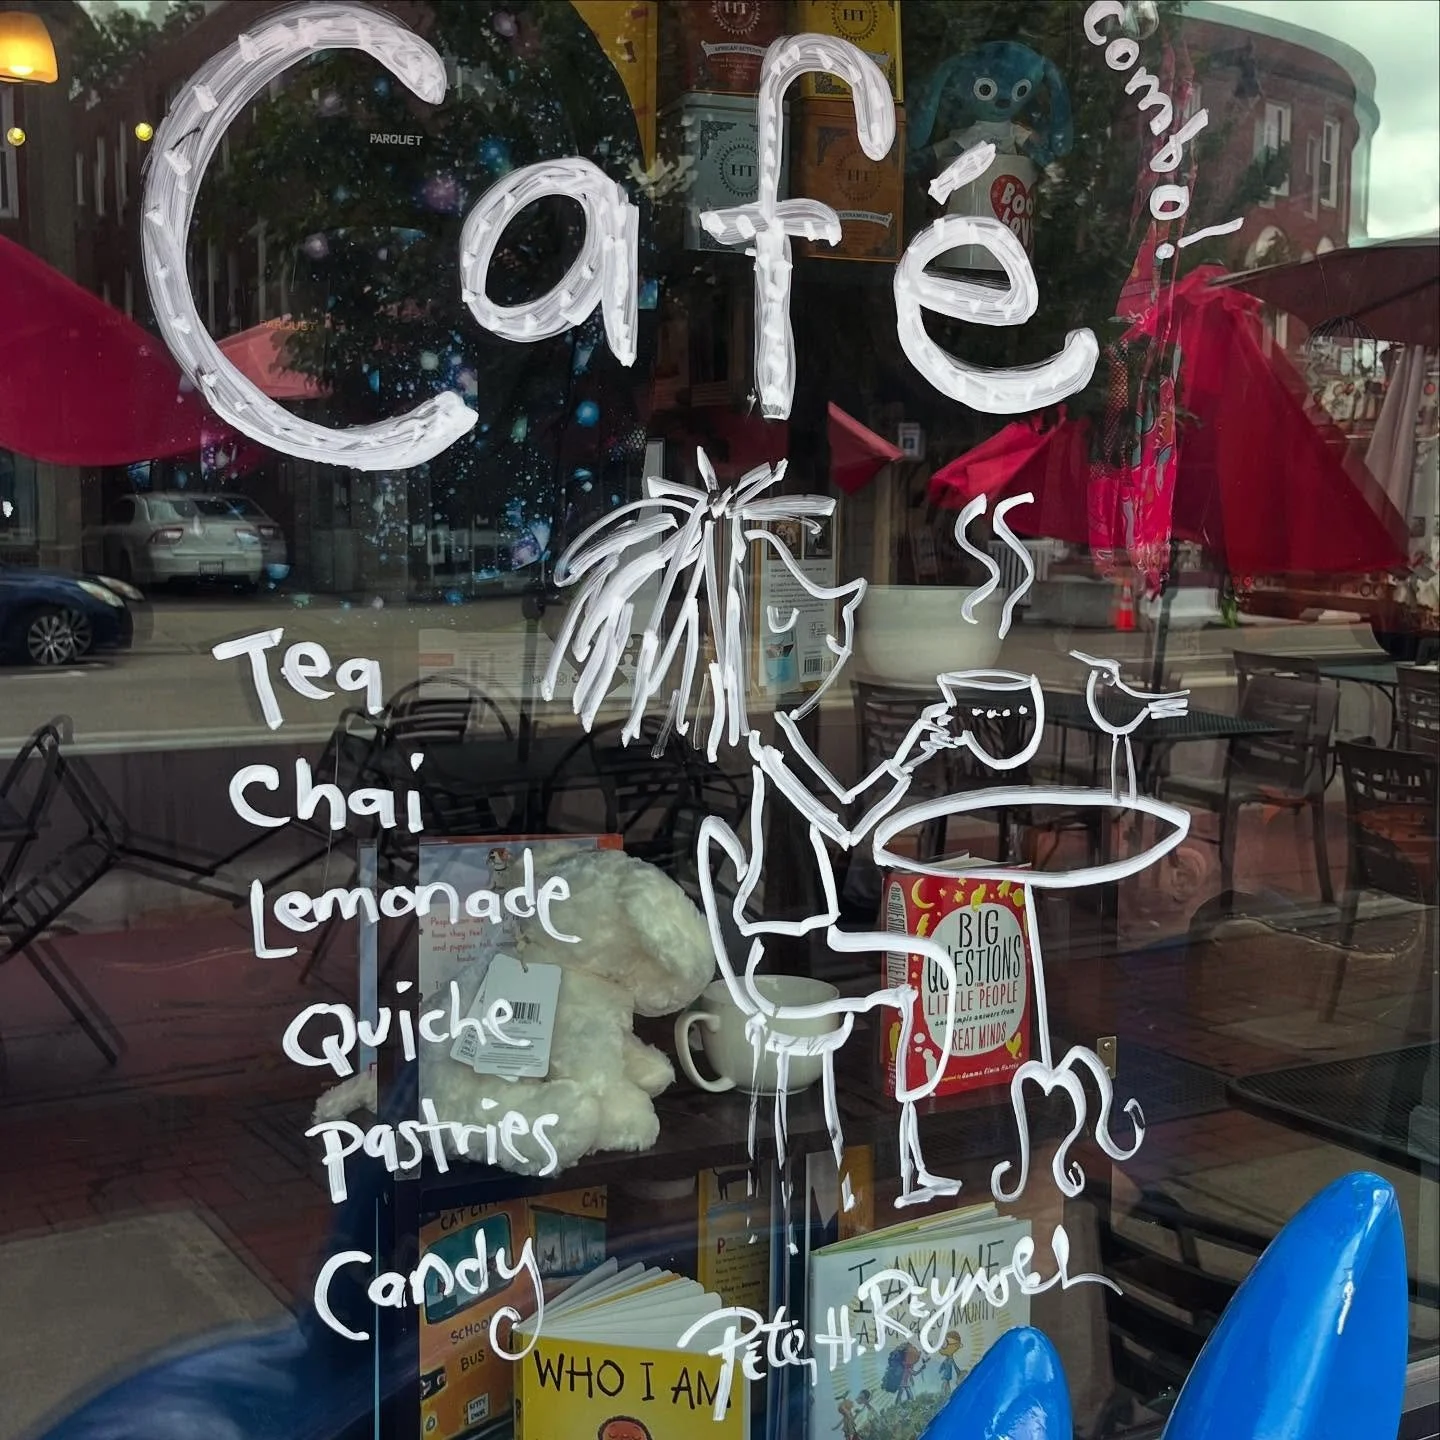 Café
combo!
PARQUET
HT
HT
HT
HT
BOO
Tea
Chai
Lemonade
Quiche
Pastries
Candy
BIG
QUESTIONS
FROM
LITTLE PEOPLE
and simple answers from
GREAT MINDS
CAT CITY
CAT
SCHOOL
BUS
WHO I AM
I AM WE
Peter H. Reynolds